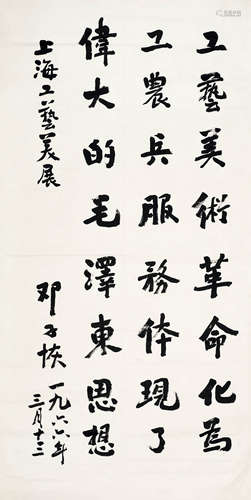 工藝美術革命化為
工農兵服務体現了
偉大的毛澤東思想
上海工藝美展
邓子恢
一九六六年
三月十三